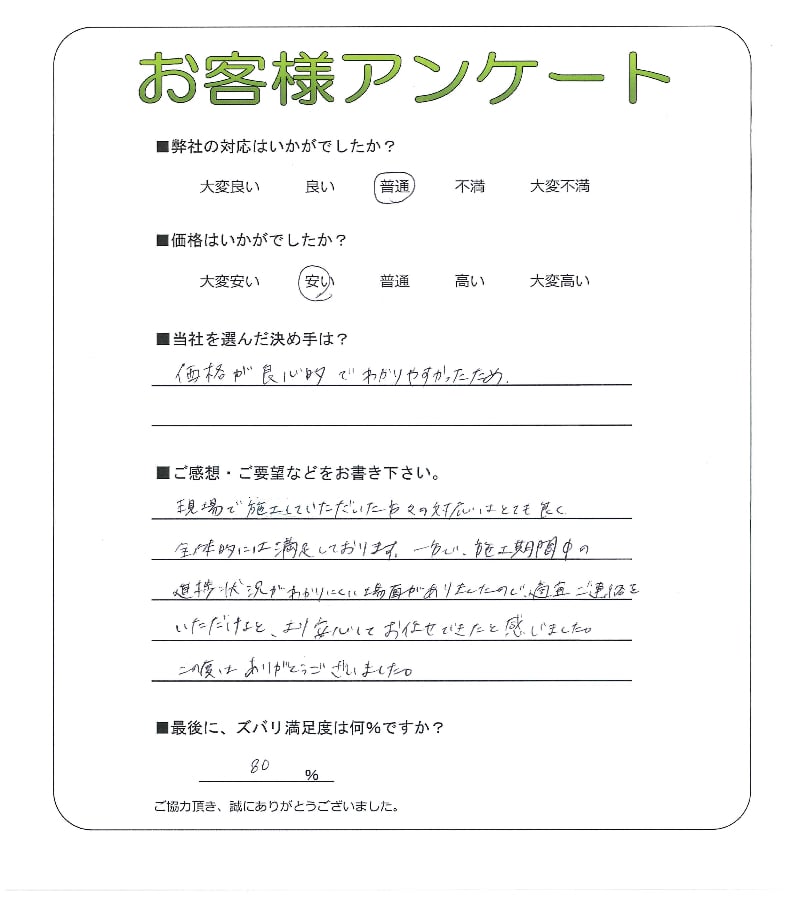 お客様アンケート
■弊社の対応はいかがでしたか？
大変良い 良い 普通 不満 大変不満
■価格はいかがでしたか？
大変安い 安い 普通 高い 大変高い
■当社を選んだ決め手は？
価格が良心的でわかりやすかったため。
■ご感想・ご要望などをお書き下さい。
現場で施工していただいた方々の対応はとても良く
全体的には満足しております。一方で、施工期間中の
進捗状況がわかりにくい場面がありましたので、適宜ご連絡を
いただけると、より安心してお任せできたと感じました。
この度はありがとうございました。
■最後に、ズバリ満足度は何％ですか？
80 %
ご協力頂き、誠にありがとうございました。